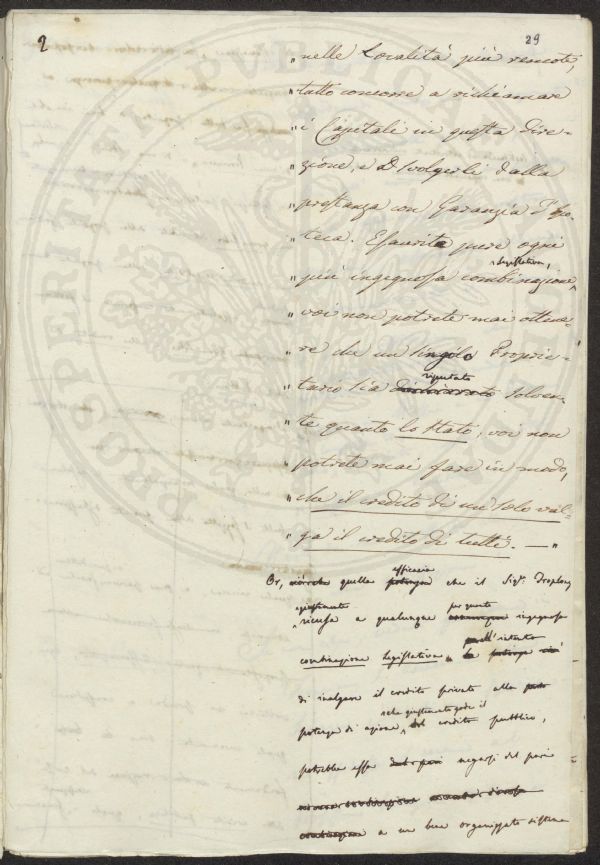 2
29
" nelle Località più remote,
" tutto concorre a richiamare
" i Capitali in questa dire-
" zione, e a svolgerli dalla
" prestanza con Garanzia d'Ipo-
" teca. Esaurite pure ogni
" più ingegnosa combinazione legislativa,
" voi non potrete mai ottene-
" re che un singolo Proprie-
" tario sia riputato solven-
" te quanto lo Stato, voi non
" potrete mai fare in modo,
" che il credito di un solo val-
" ga il credito di tutti. — "
Or, quella efficacia che il Sigr. Troplong
giustamente ricusa a qualunque per quanto ingegnosa
combinazione legislativa, nell'intento
di inalzare il credito privato alla
potenza di azione, che giustamente gode il credito pubblico,
potrebbe essa negarsi del pari
a un bene organizzato sistema